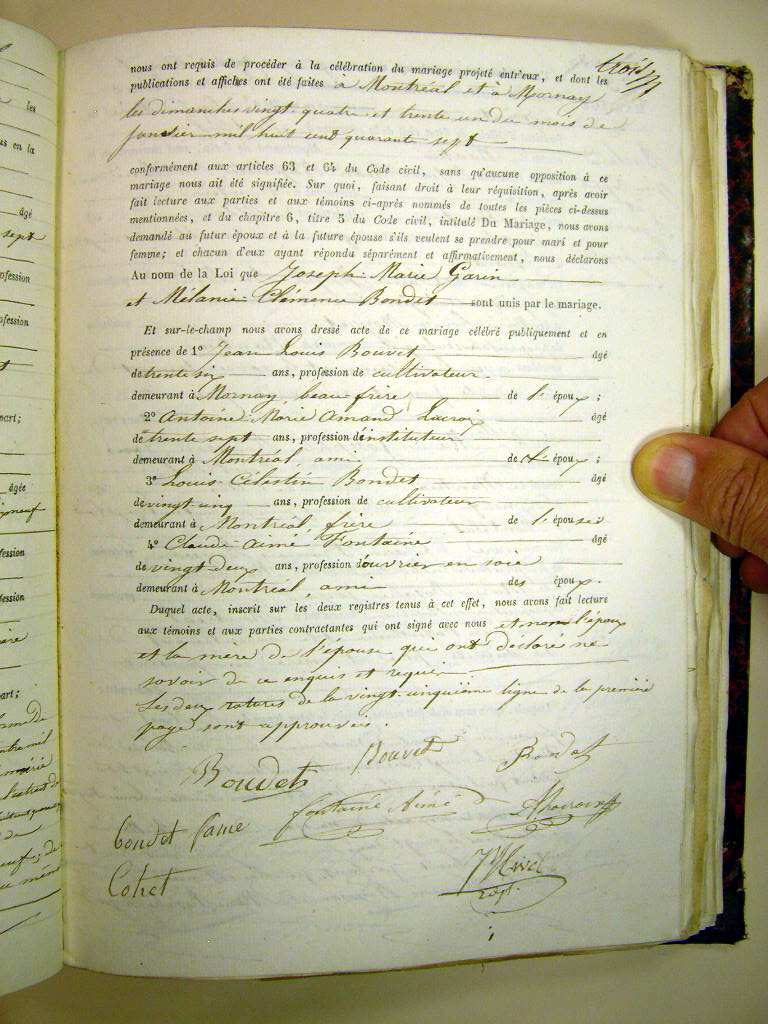 trois
nous ont requis de procéder à la célébration du mariage projeté entr'eux, et dont les
publications et affiches ont été faites à Montréal et à Mornay
les dimanches vingt quatre et trente un du mois de
janvier mil huit cent quarante sept
conformément aux articles 63 et 64 du Code civil, sans qu'aucune opposition à ce
mariage nous ait été signifiée. Sur quoi, faisant droit à leur réquisition, après avoir
fait lecture aux parties et aux témoins ci-après nommés de toutes les pièces ci-dessus
mentionnées, et du chapitre 6, titre 5 du Code civil, intitulé Du Mariage, nous avons
demandé au futur époux et à la future épouse s'ils veulent se prendre pour mari et pour
femme; et chacun d'eux ayant répondu séparément et affirmativement, nous déclarons
Au nom de la Loi que Joseph Marie Garin
et Mélanie Clémence Bondet sont unis par le mariage.
Et sur-le-champ nous avons dressé acte de ce mariage célébré publiquement et en
présence de 1° Jean Louis Bouvet âgé
de trente six ans, profession de cultivateur
demeurant à Mornay, beau frère de l'époux;
2° Antoine Marie Amand Lacroix âgé
de trente sept ans, profession d'instituteur
demeurant à Montréal, ami de l'époux;
3° Louis Célestin Bondet âgé
de vingt cinq ans, profession de cultivateur
demeurant à Montréal, frère de l'épouse;
4° Claude Aimé Fontaine âgé
de vingt deux ans, profession d'ouvrier en soie
demeurant à Montréal, ami des époux.
Duquel acte, inscrit sur les deux registres tenus à cet effet, nous avons fait lecture
aux témoins et aux parties contractantes qui ont signé avec nous et non l'époux
et la mère de l'épouse qui ont déclaré ne
savoir de ce enquis et requis
Les deux ratures de la vingt cinquième ligne de la première
page sont approuvées.
Boudet Bouvet Bondet
fontaine Aimé
Bondet fame
Cotret